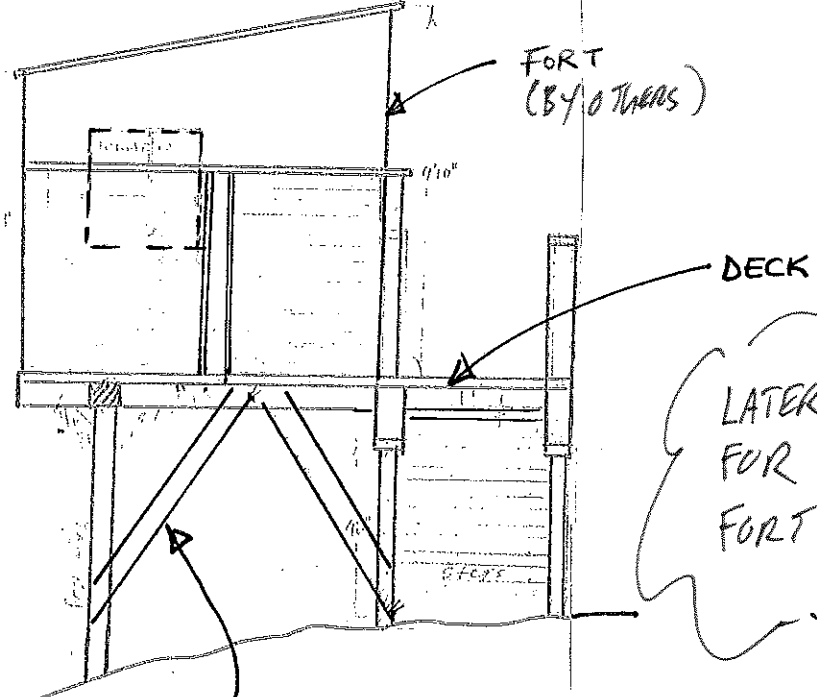 FORT
(BY OTHERS)
9'10"
DECK
LATER
FOR
FORT
steps